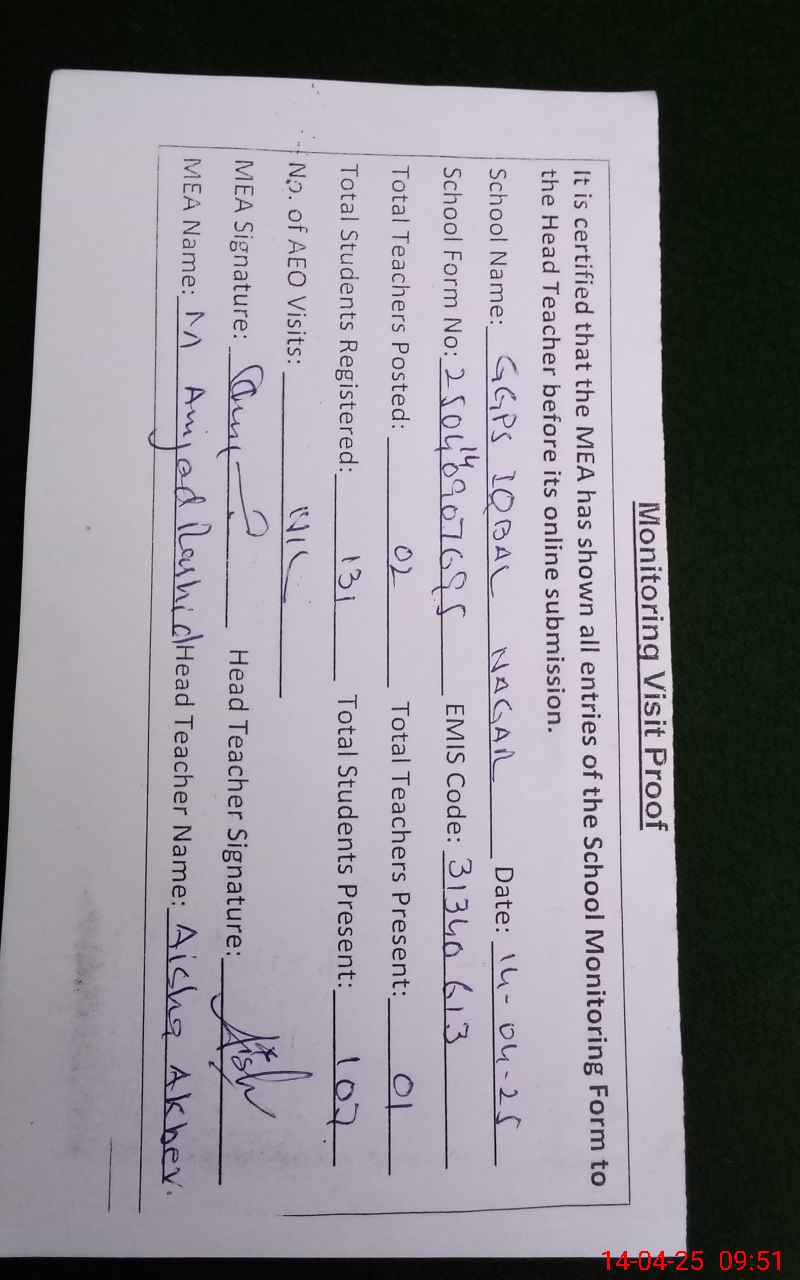 Monitoring Visit Proof
It is certified that the MEA has shown all entries of the School Monitoring Form to
the Head Teacher before its online submission.
School Name: GGPS IQBAL NAGAR Date: 14-04-25
School Form No: EMIS Code: 31340613
Total Teachers Posted: 02 Total Teachers Present: 01
Total Students Registered: 131 Total Students Present: 107
No. of AEO Visits: NIL
MEA Signature: Head Teacher Signature:
MEA Name: M Amjad Rashid Head Teacher Name: Aisha Akhter.
14-04-25 09:51